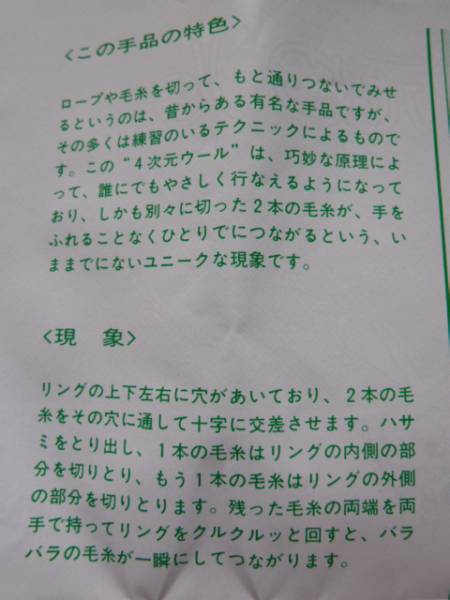 〈この手品の特色〉
ロープや毛糸を切って、もと通りつないでみせ
るというのは、昔からある有名な手品ですが、
その多くは練習のいるテクニックによるもので
す。この“4次元ウール”は、巧妙な原理によ
って、誰にでもやさしく行なえるようになって
おり、しかも別々に切った2本の毛糸が、手を
ふれることなくひとりでにつながるという、い
ままでにないユニークな現象です。
〈現　象〉
リングの上下左右に穴があいており、2本の毛
糸をその穴に通して十字に交差させます。ハサ
ミをとり出し、1本の毛糸はリングの内側の部
分を切りとり、もう1本の毛糸はリングの外側
の部分を切りとります。残った毛糸の両端を両
手で持ってリングをクルクルッと回すと、バラ
バラの毛糸が一瞬にしてつながります。